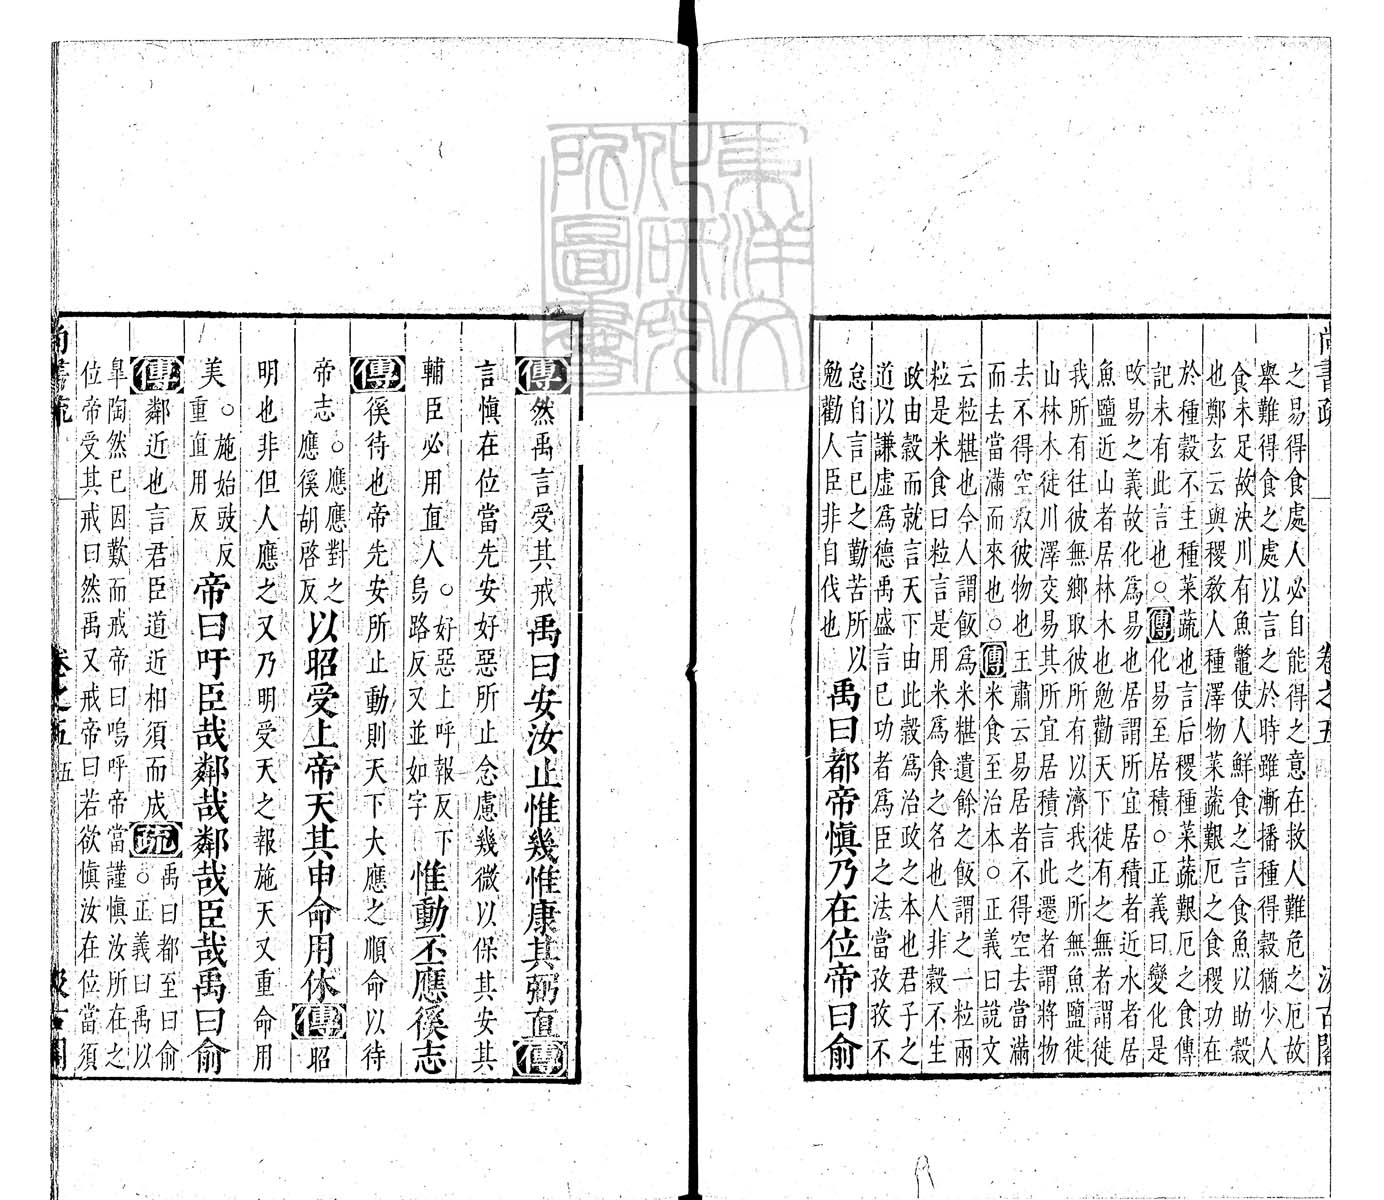 尚書疏 卷之五 汲古閣
之易得食處人必自能得之意在救人難危之厄故
舉難得食之處以言之於時雖漸播種得穀猶少人
食未足故決川有魚鼈使人鮮食之言食魚以助穀
也鄭玄云與稷敎人種澤物菜蔬艱厄之食稷功在
於種穀不主種菜蔬也言后稷種菜蔬艱厄之食傳
記未有此言也○傳化易至居積○正義曰變化是
攺易之義故化爲易也居謂所宜居積者近水者居
魚鹽近山者居林木也勉勸天下徙有之無者謂徙
我所有往彼無鄉取彼所有以濟我之所無魚鹽徙
山林木徙川澤交易其所宜居積言此遷者謂將物
去不得空取彼物也王肅云易居者不得空去當滿
而去當滿而來也○傳米食至治本○正義曰說文
云粒糂也今人謂飯爲米糂遺餘之飯謂之一粒兩
粒是米食曰粒言是用米爲食之名也人非穀不生
政由穀而就言天下由此穀爲治政之本也君子之
道以謙虛爲德禹盛言已功者爲臣之法當孜孜不
怠自言已之勤苦所以
勉勸人臣非自伐也
禹曰都帝愼乃在位帝曰俞
傳然禹言受其戒禹曰安汝止惟幾惟康其弼直傳
言愼在位當先安好惡所止念慮幾微以保其安其
輔臣必用直人○好惡上呼報反下
烏路反又並如字
惟動丕應徯志
傳徯待也帝先安所止動則天下大應之順命以待
帝志○應應對之
應徯胡啓反
以昭受上帝天其申命用休傳昭
明也非但人應之又乃明受天之報施天又重命用
美○施始豉反
重直用反
帝曰吁臣哉鄰哉鄰哉臣哉禹曰俞
傳鄰近也言君臣道近相須而成疏禹曰都至曰俞
○正義曰禹以
臯陶然已因歎而戒帝曰嗚呼帝當謹愼汝所在之
位帝受其戒曰然禹又戒帝曰若欲愼汝在位當須
尚書疏 卷之五 五 汲古閣
東洋文化研究所圖書